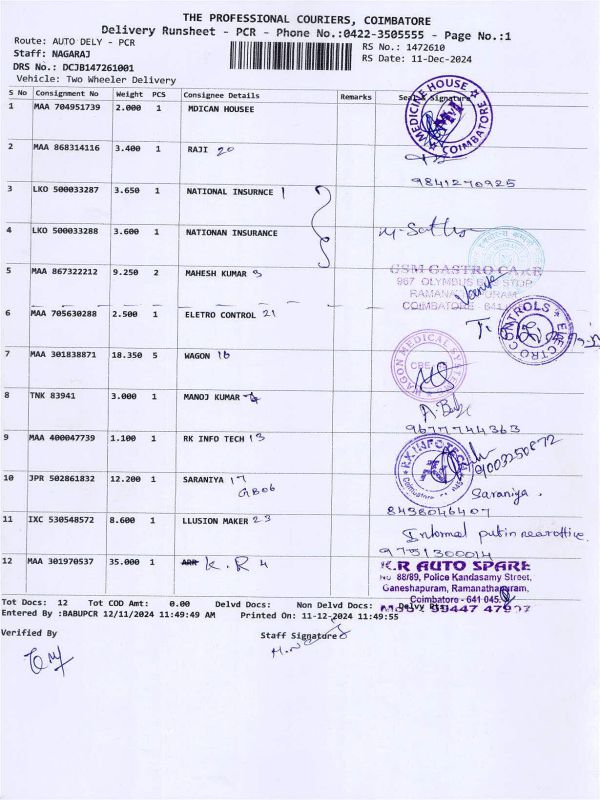 THE PROFESSIONAL COURIERS, COIMBATORE
Delivery Runsheet - PCR - Phone No.:0422-3505555 - Page No.:1
Route: AUTO DELY - PCR
RS No.: 1472610
Staff: NAGARAJ
RS Date: 11-Dec-2024
DRS No.: DCJB147261001
Vehicle: Two Wheeler Delivery
S No Consignment No Weight PCS Consignee Details Remarks Signature
1 MAA 704951739 2.000 1 MDICAN HOUSEE
MEDICINE HOUSE COIMBATORE
2 MAA 868314116 3.400 1 RAJI 20
9841270925
3 LKO 500033287 3.650 1 NATIONAL INSURNCE 1
4 LKO 500033288 3.600 1 NATIONAN INSURANCE
5 MAA 867322212 9.250 2 MAHESH KUMAR
GSM GASTRO CARE
967 OLYMBUS BUS STOP
COIMBATORE
6 MAA 705630288 2.500 1 ELETRO CONTROL 21
ELECTRO CONTROLS
7 MAA 301838871 18.350 5 WAGON 16
WAGON MEDICAL SYSTEM
CBE
8 TNK 83941 3.000 1 MANOJ KUMAR
A. Babu
9677744363
9 MAA 400047739 1.100 1 RK INFO TECH 13
R.K INFOTECH
9003250872
10 JPR 502861832 12.200 1 SARANIYA 17
GB06
Saraniya.
8438046407
11 IXC 530548572 8.600 1 LLUSION MAKER 23
Informal put in near office.
9751300014
12 MAA 301970537 35.000 1 ARR K.R 4
K.R AUTO SPARE
No 88/89, Police Kandasamy Street,
Ganeshapuram, Ramanathapuram,
Coimbatore - 641 045.
Tot Docs: 12 Tot COD Amt: 0.00 Delvd Docs: Non Delvd Docs:
Entered By :BABUPCR 12/11/2024 11:49:49 AM Printed On: 11-12-2024 11:49:55
Verified By
Staff Signature